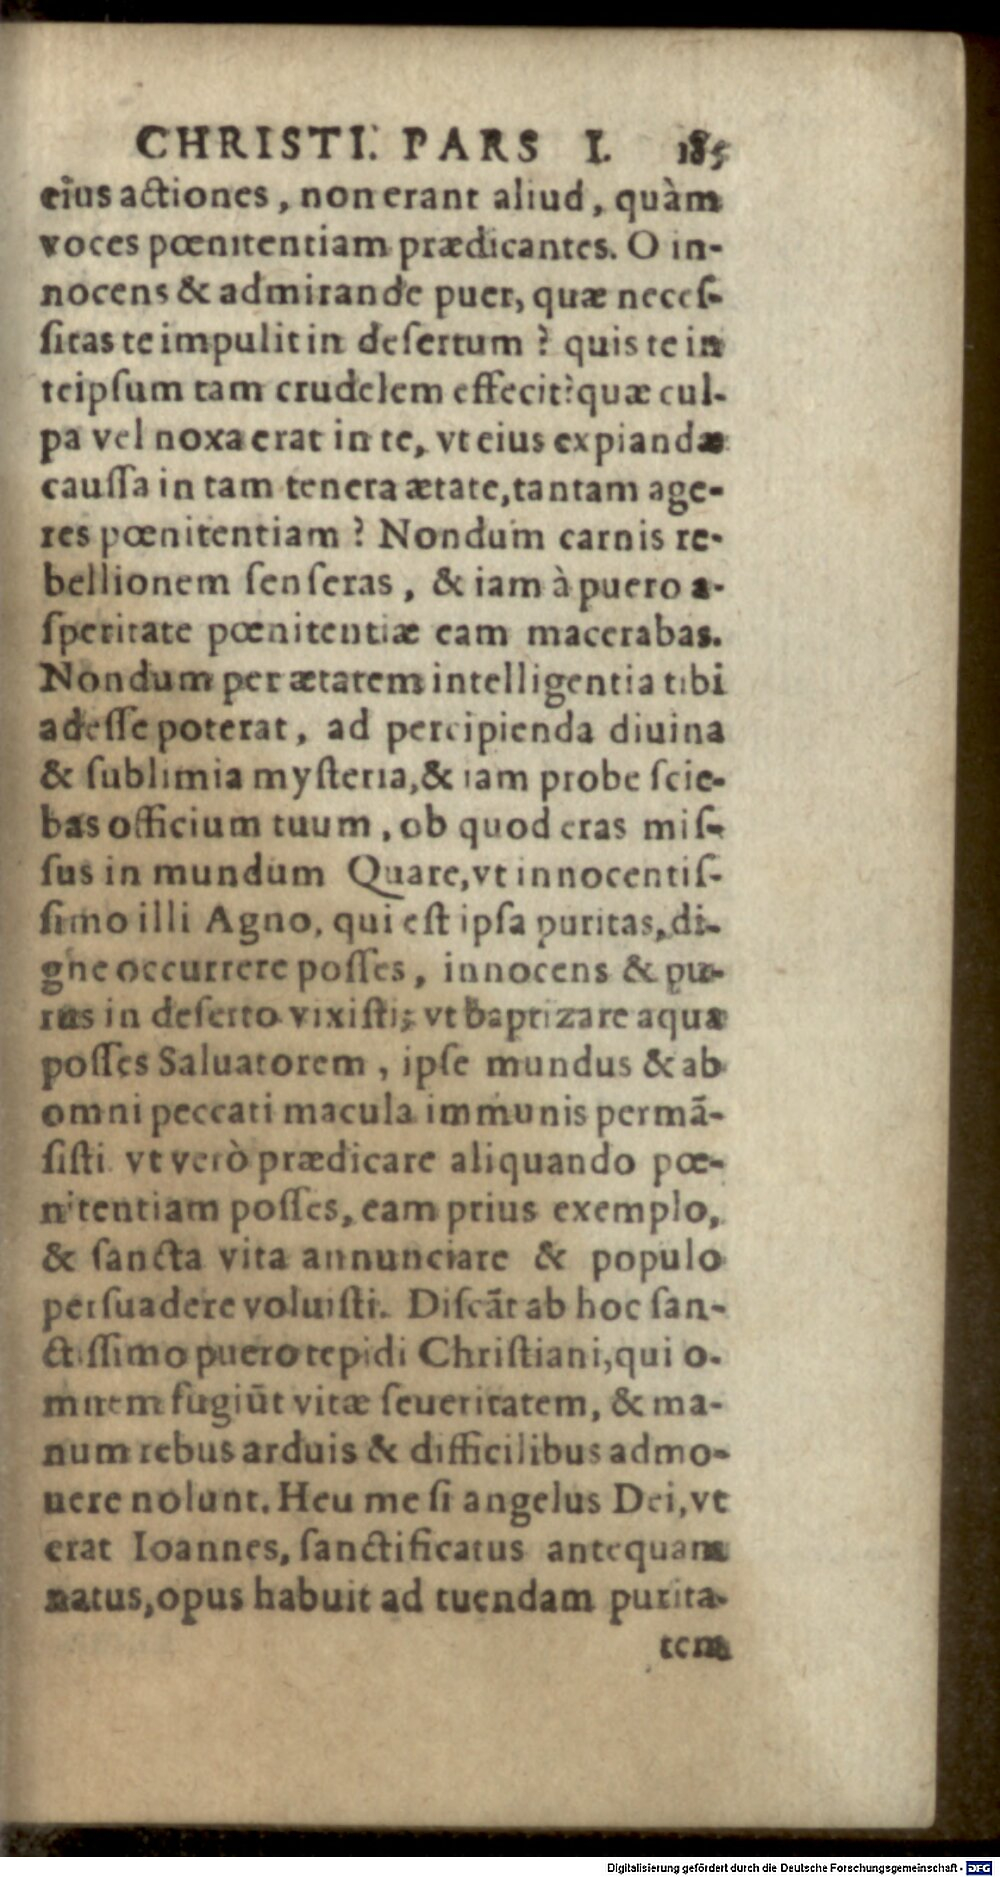 CHRISTI. PARS I. 185
eius actiones, non erant aliud, quàm
voces pœnitentiam prædicantes. O in-
nocens & admirande puer, quæ neceſ-
ſitas te impulit in deſertum ? quis te in
teipſum tam crudelem effecit? quæ cul-
pa vel noxa erat in te, vt eius expiandæ
cauſſa in tam tenera ætate, tantam age-
res pœnitentiam ? Nondum carnis re-
bellionem ſenſeras, & iam à puero a-
ſperitate pœnitentiæ eam macerabas.
Nondum per ætatem intelligentia tibi
adeſſe poterat, ad percipienda diuina
& ſublimia myſteria, & iam probe ſcie-
bas officium tuum, ob quod eras miſ-
ſus in mundum Quare, vt innocentiſ-
ſimo illi Agno, qui eſt ipſa puritas, di-
gne occurrere poſſes, innocens & pu-
rus in deſerto vixiſti; vt baptizare aqua
poſſes Saluatorem, ipſe mundus & ab
omni peccati macula immunis permã-
ſiſti. vt verò prædicare aliquando pœ-
nitentiam poſſes, eam prius exemplo,
& ſancta vita annunciare & populo
perſuadere voluiſti. Diſcãt ab hoc ſan-
ctiſſimo puero tepidi Chriſtiani, qui o-
mnem fugiũt vitæ ſeueritatem, & ma-
num rebus arduis & difficilibus admo-
uere nolunt. Heu me ſi angelus Dei, vt
erat Ioannes, ſanctificatus antequam
natus, opus habuit ad tuendam purita-
tem
Digitalisierung gefördert durch die Deutsche Forschungsgemeinschaft - DFG